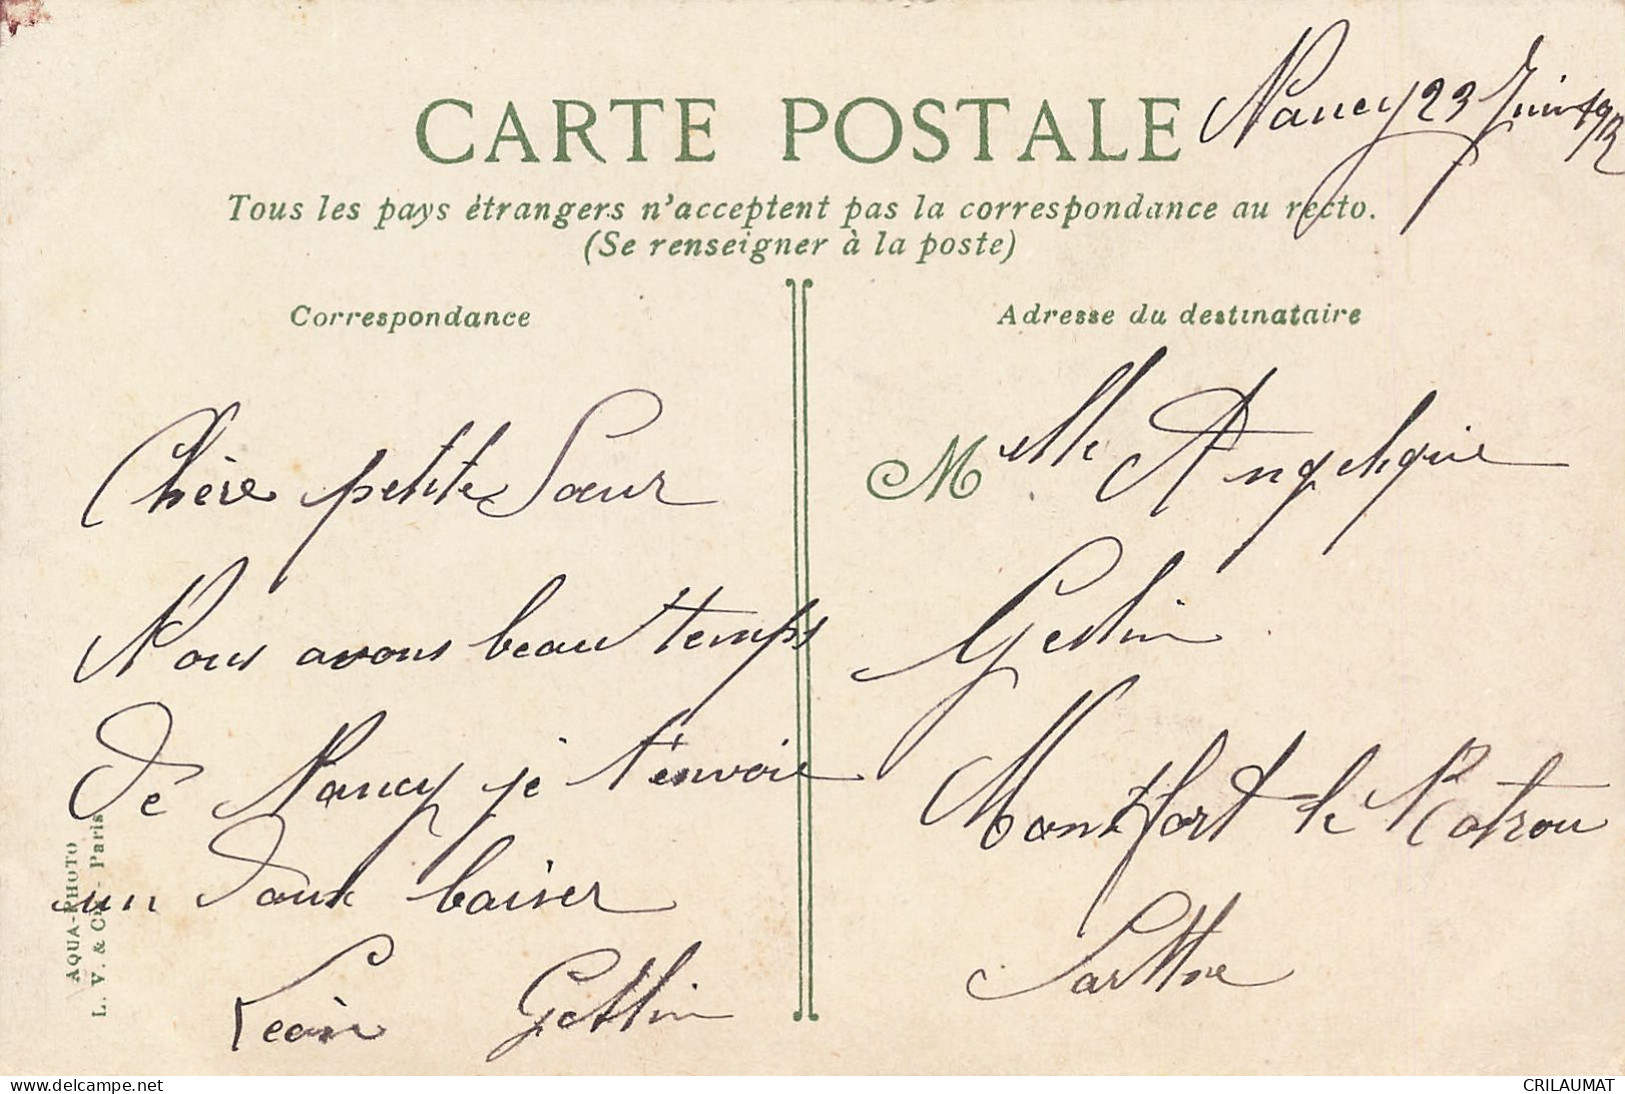 Nancy 23 Juin 1912
CARTE POSTALE
Tous les pays étrangers n'acceptent pas la correspondance au recto.
(Se renseigner à la poste)
Correspondance
Chère petite Sœur
Nous avons beau temps
De Nancy je t'envoie
un doux baiser
Léon Gestin
AQUA-PHOTO
L. V. & Cie - Paris
Adresse du destinataire
Melle Angelique
Gestin
Montfort le Rotrou
Sarthe
delcampe.net
CRILAUMAT